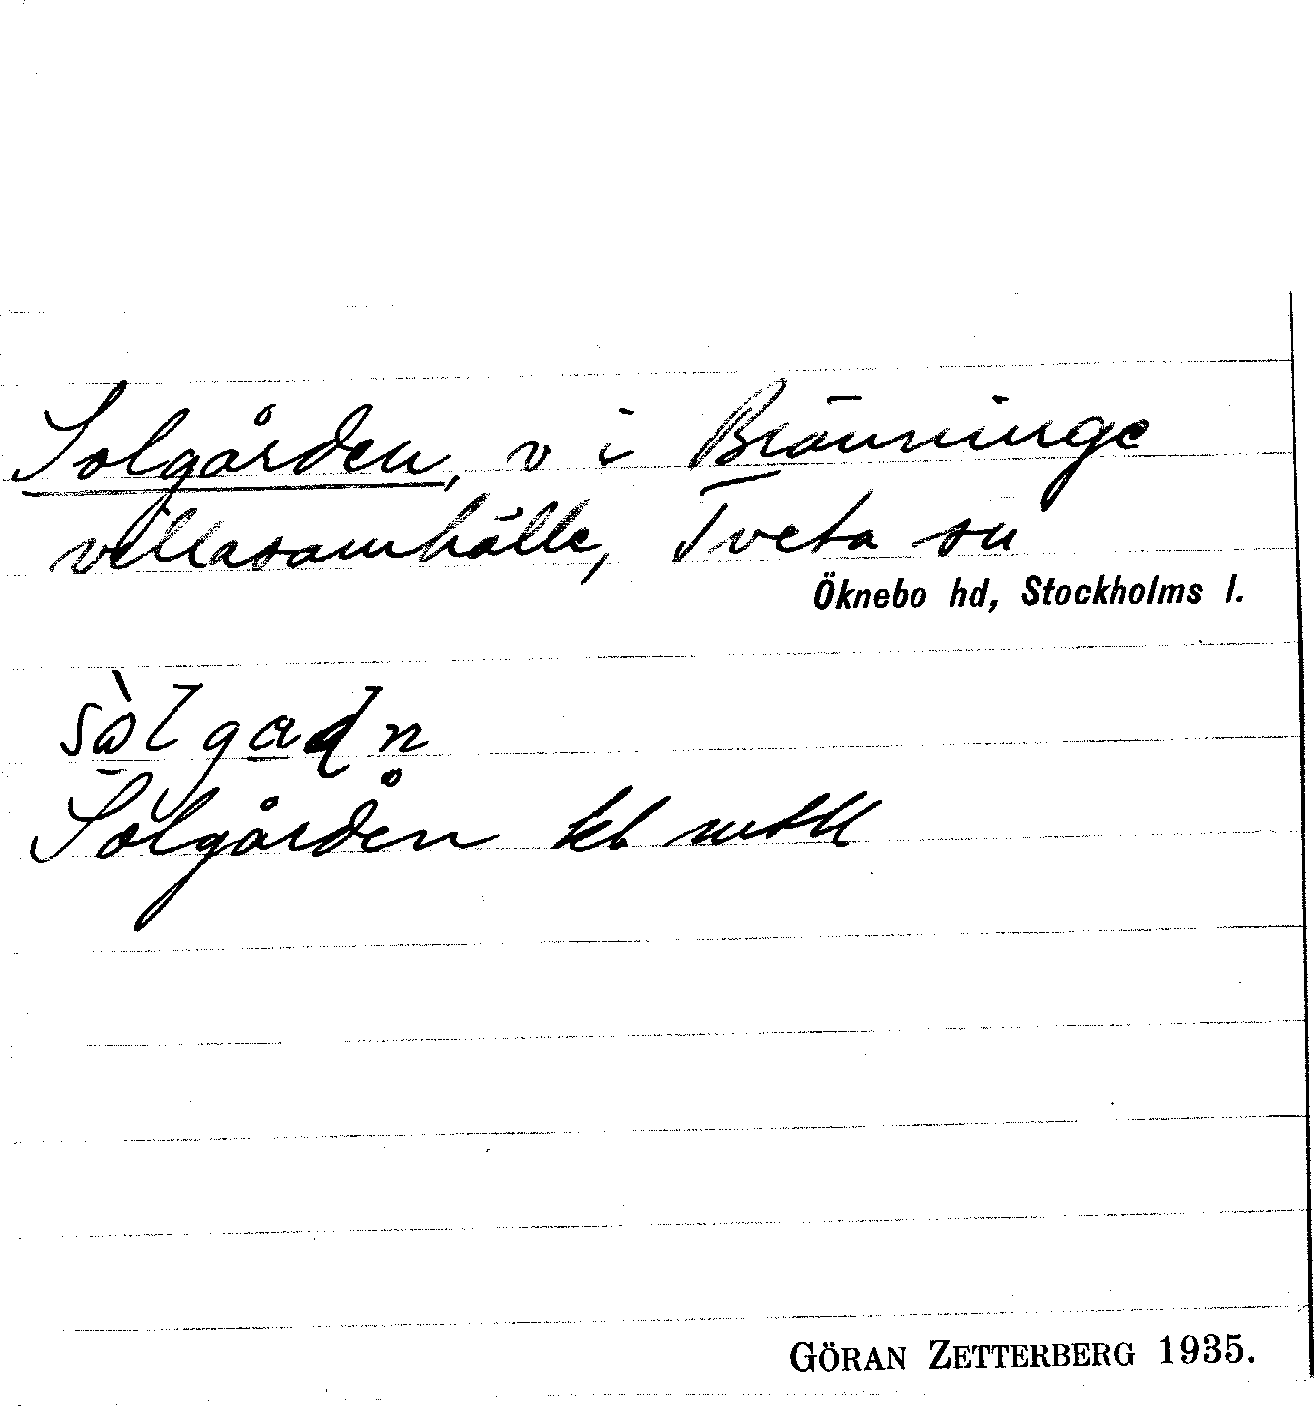 Solgården, v i Bränninge
villasamhälle, Tveta sn
Öknebo hd, Stockholms l.
Solgården
GÖRAN ZETTERBERG 1935.